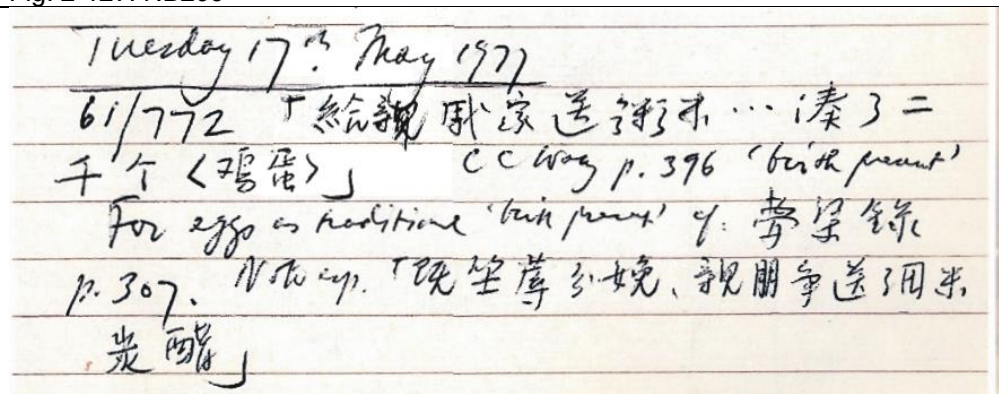 Tuesday 17th May 1977
61/772 「給親戚家送粥米…湊了二
千个〈鸡蛋〉」 C C Wang p. 396 'birth present'
For eggs as traditional 'birth present' cf. 夢梁錄
p. 307. Note esp. 「既坐蓐分娩、親朋爭送细米
炭醋」